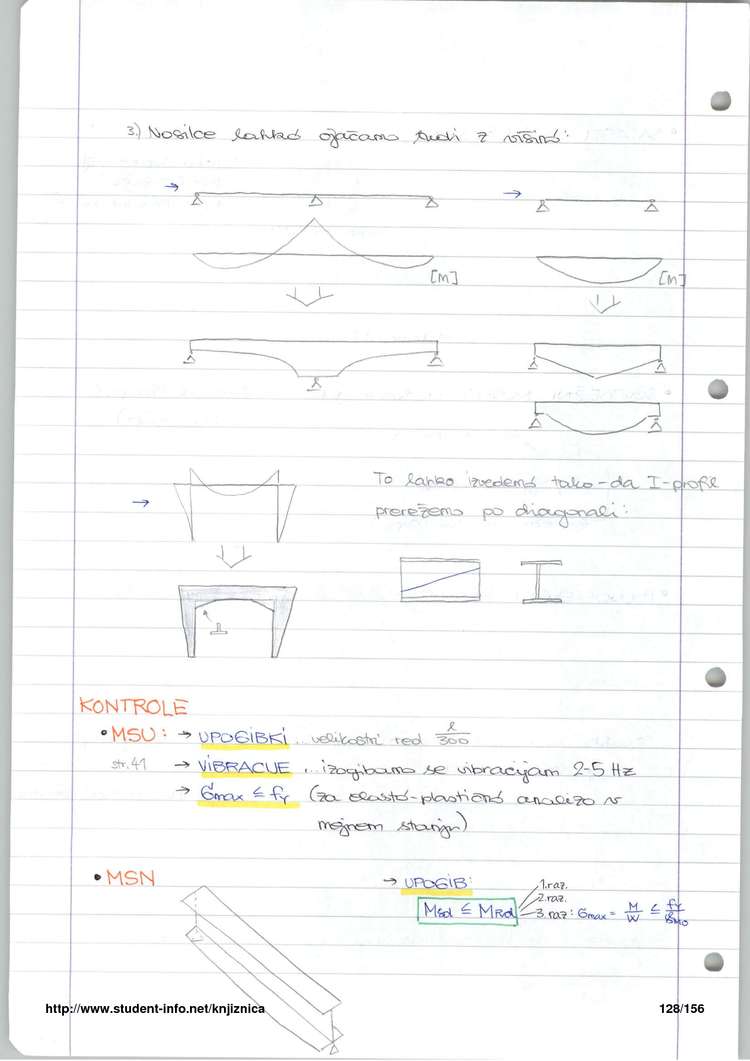 3.) Nosilce lahko ojačamo tudi z višino:
[M]
[M]
To lahko izvedemo tako-da I-profil
prerežemo po diagonali:
KONTROLE
• MSU: → UPOGIBKI ... velikostni red l/300
str. 41 → VIBRACIJE ... izogibamo se vibracijam 2-5 Hz
→ σmax ≤ fy (za elasto-plastično analizo v
mejnem stanju)
• MSN → UPOGIB:
1. raz.
2. raz.
MEd ≤ MRd 3. raz: σmax = M/W ≤ fy/γM0
http://www.student-info.net/knjiznica 128/156